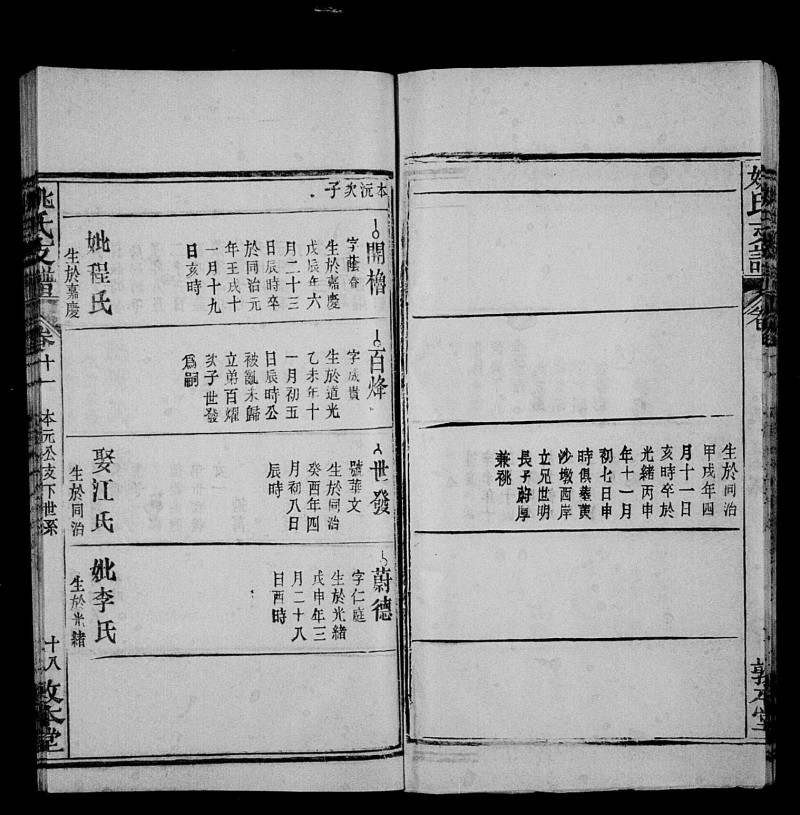 生於同治
甲戌年四
月十一日
亥時卒於
光緒丙申
年十一月
初七日申
時俱塟黄
沙墩西岸
立兄世明
長子蔚厚
兼祧
敦本堂
本沅次子
開櫓
字蔭畬
生於嘉慶
戊辰年六
月二十三
日辰時卒
於同治元
年壬戌十
一月十九
日亥時
妣程氏
生於嘉慶
百烽
字成貴
生於道光
乙未年十
一月初五
日辰時公
被亂未歸
立弟百燿
次子世發
爲嗣
世發
號華文
生於同治
癸酉年四
月初八日
辰時
娶江氏
生於同治
蔚德
字仁庭
生於光緒
戊申年三
月二十八
日酉時
妣李氏
生於光緒
姚氏支譜
卷十一
本元公支下世系
十八
敦本堂